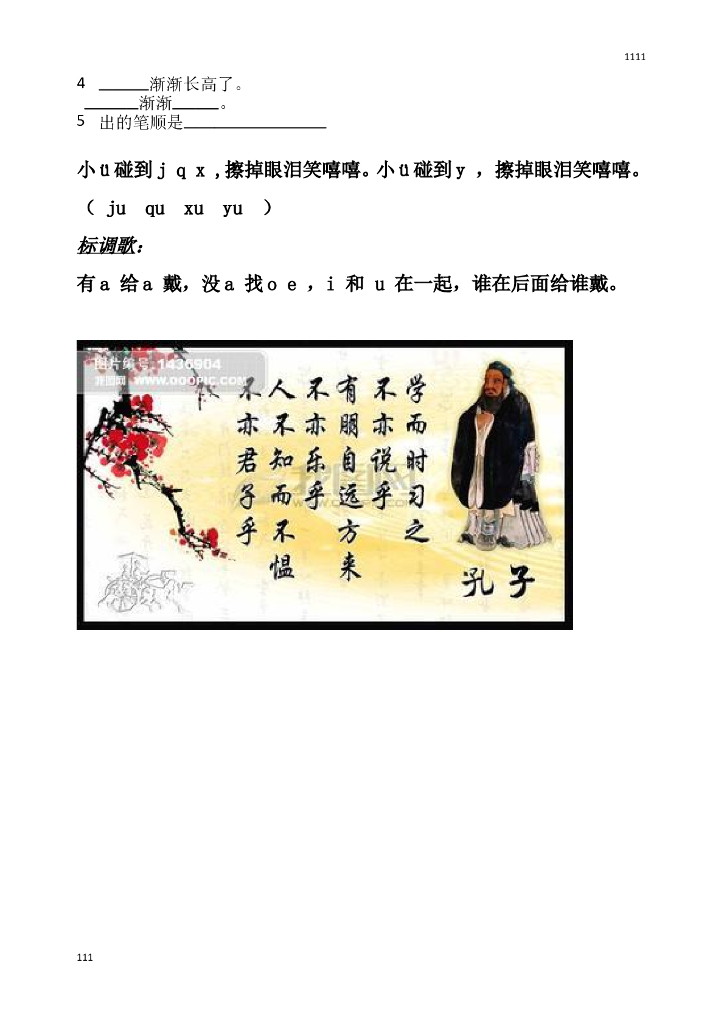 1111
4 ______渐渐长高了。
______渐渐______。
5 出的笔顺是________________
小ü碰到j q x ,擦掉眼泪笑嘻嘻。小ü碰到y ，擦掉眼泪笑嘻嘻。
（ ju qu xu yu ）
标调歌：
有a 给a 戴，没a 找o e ，i 和 u 在一起，谁在后面给谁戴。
图片编号:1436904
我图网 www.OOOPIC.com
学而时习之
不亦说乎
有朋自远方来
不亦乐乎
人不知而不愠
不亦君子乎
孔子
我图网
111